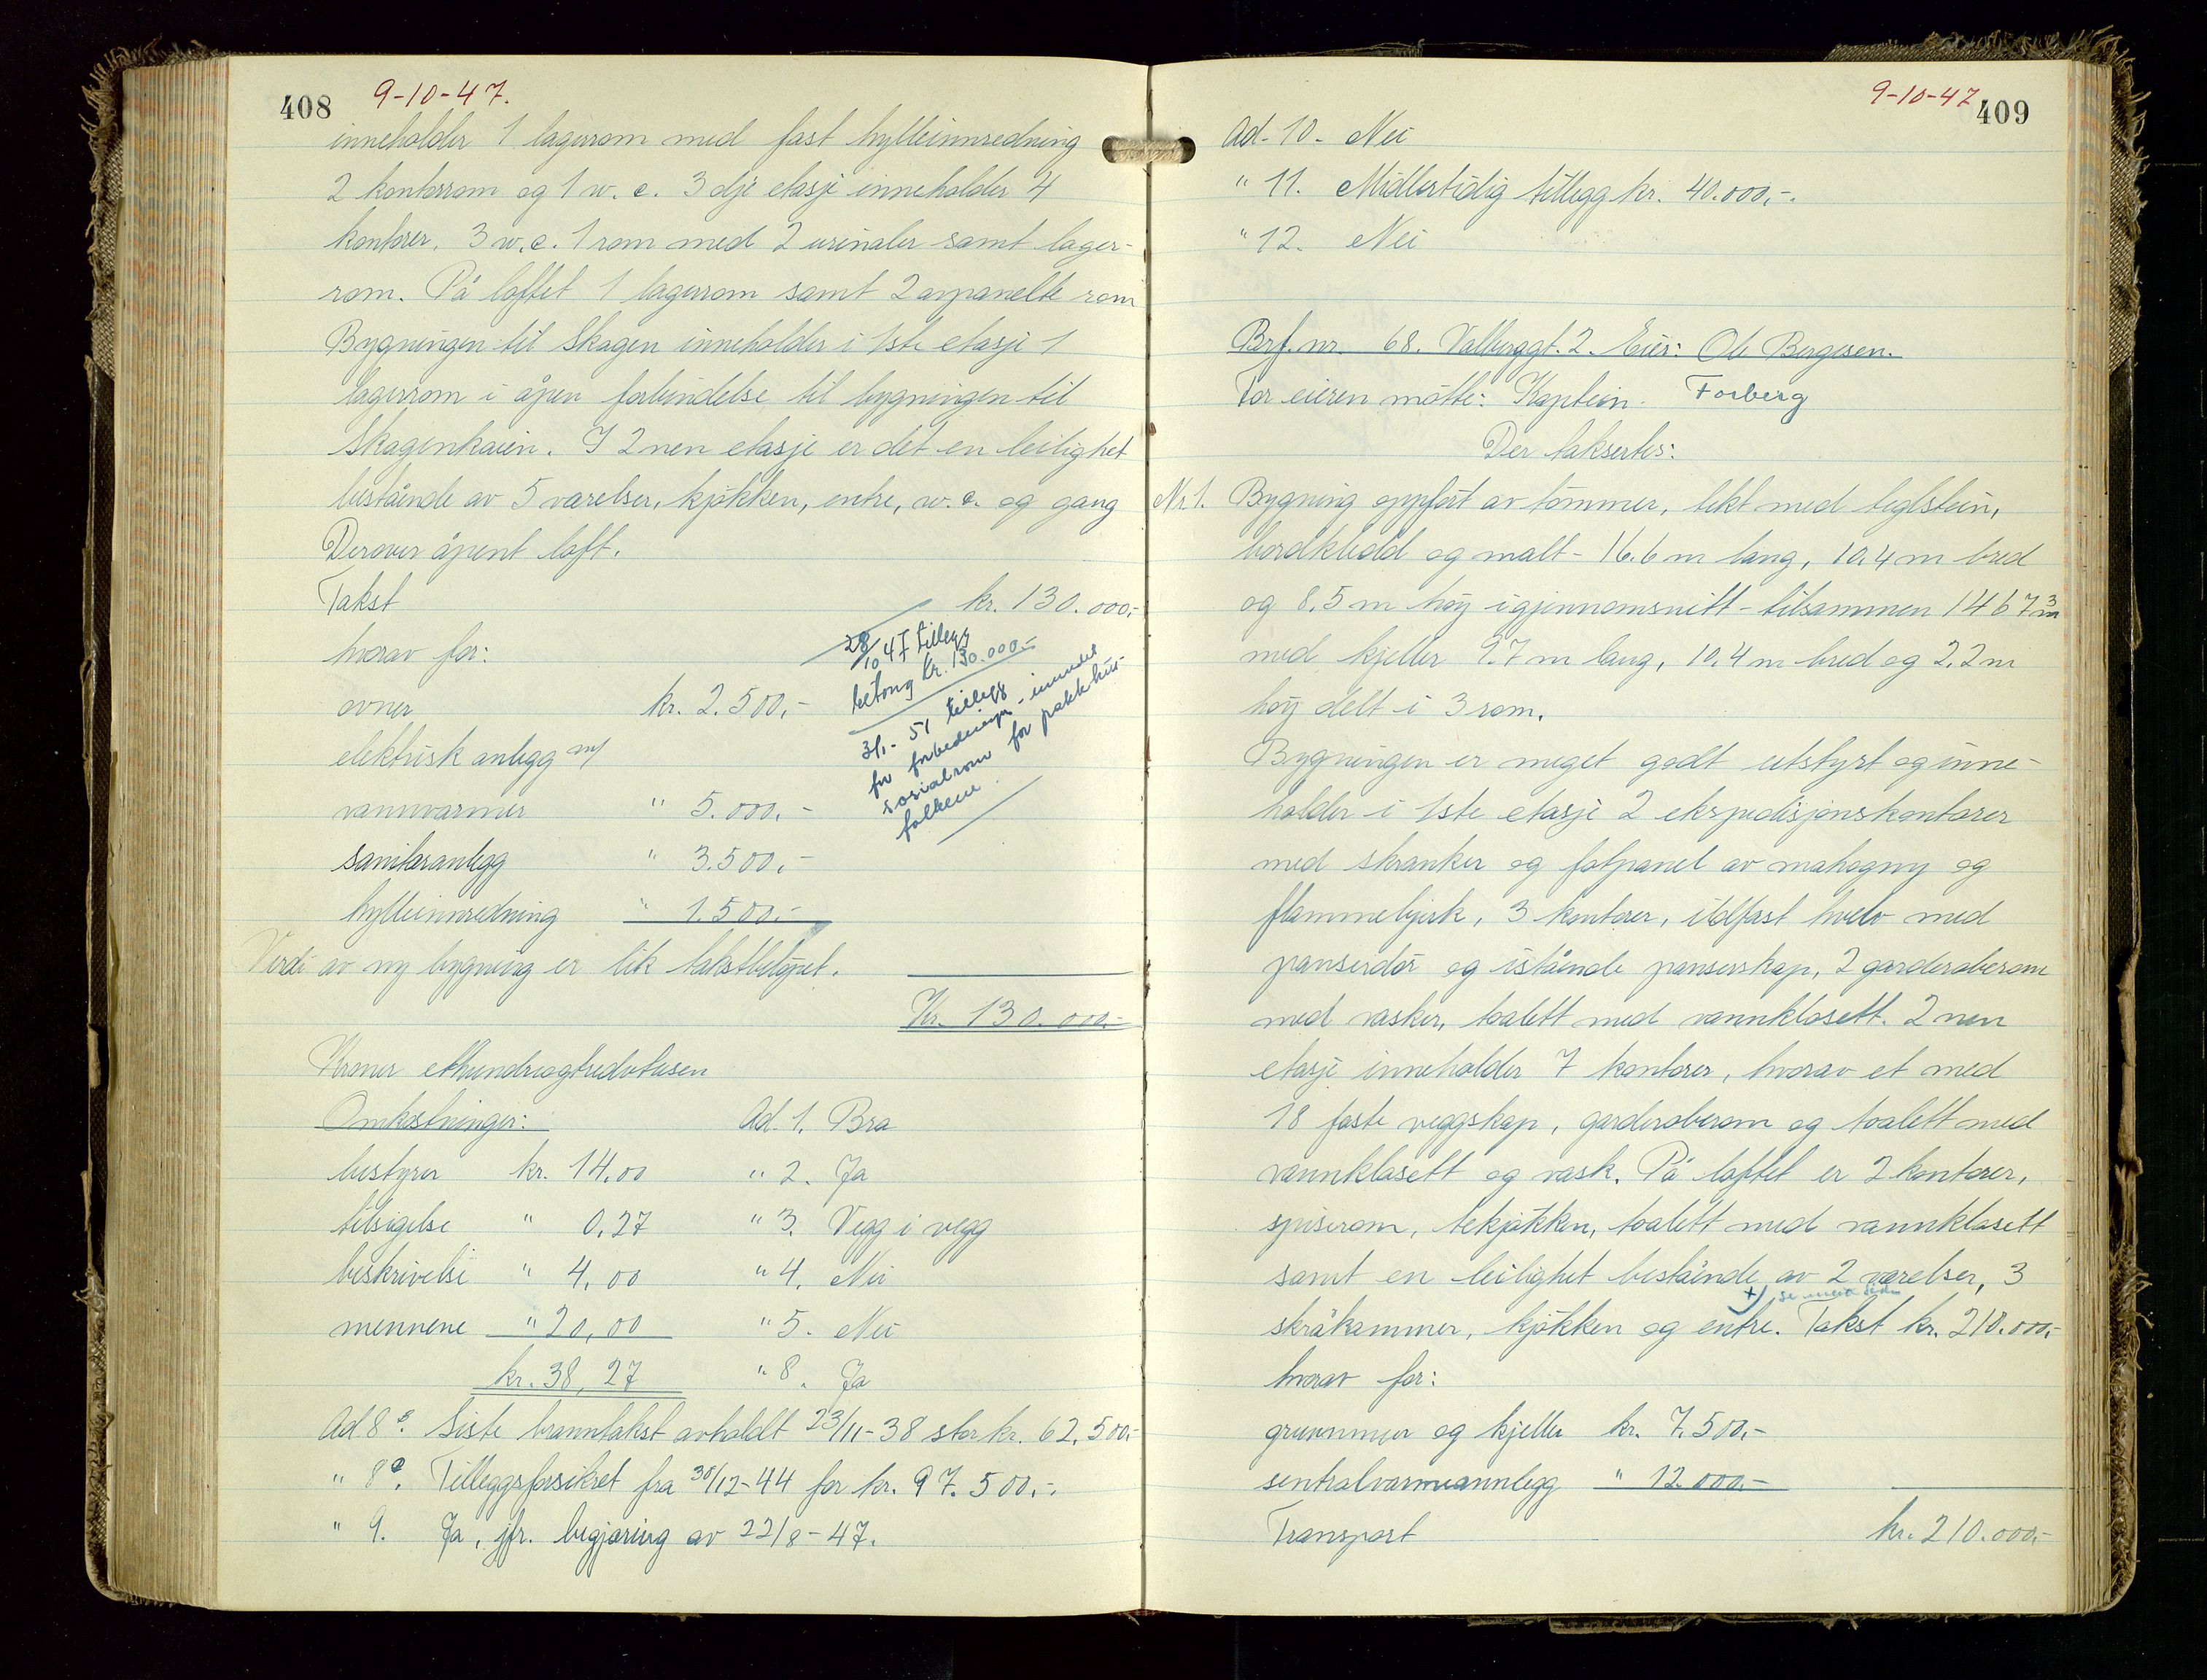 408
9-10-47.
inneholder 1 lagerrom med fast hylleinnredning
2 kontorrom og 1 w.c. 3dje etasje inneholder 4
kontorer, 3 w.c. 1 rom med 2 urinaler samt lager-
rom. På loftet 1 lagerrom samt 2 avpanelte rom
Bygningen til Skagen inneholder i 1ste etasje 1
lagerrom i åpen forbindelse til bygningen til
Skagenkaien. I 2nen etasje er det en leilighet
bestående av 5 værelser, kjøkken, entre, w.c. og gang
Derover åpent loft.
Takst kr. 130.000,-
hvorav for:
ovner kr. 2.500,-
elektrisk anlegg m/
vannvarmer " 5.000,-
sanitæranlegg " 3.500,-
hylleinnredning " 1.500,-
28/10 47 tillegg
betong kr. 130.000,-
3/1- 51 tillegg
for forbedringer - innredet
sosialrom for pakkhus-
folkene.
Verdi av ny bygning er lik takstbeløpet.
Kr. 130.000,-
Kroner etthundreogtredvetusen
Omkostninger: Ad. 1. Bra
bestyrer kr. 14,00 " 2. Ja
tilsigelse " 0,27 " 3. Vegg i vegg
beskrivelse " 4,00 " 4. Nei
mennene " 20,00 " 5. Nei
kr. 38,27 " 8. Ja
Ad 8 Siste branntakst avholdt 23/11-38 stor kr. 62.500,-
" 8 Tilleggsforsikret fra 30/12-44 for kr. 97.500,-.
" 9. Ja, jfr. begjæring av 22/8-47.
9-10-47
409
Ad. 10. Nei
" 11. Midlertidig tillegg kr. 40.000,-.
" 12. Nei
Brf. nr. 68. Valberggt. 2. Eier: Ole Bergesen.
For eieren møtte: Kaptein Forberg
Der taksertes:
Nr 1. Bygning oppført av tømmer, tekt med teglstein,
bordkledd og malt - 16,6 m lang, 10,4 m bred
og 8,5 m høy i gjennomsnitt - tilsammen 1467 m3
med kjeller 9.7 m lang, 10,4 m bred og 2,2 m
høy delt i 3 rom.
Bygningen er meget godt utstyrt og inne-
holder i 1ste etasje 2 ekspedisjonskontorer
med skranker og fotpanel av mahogny og
flammebjerk, 3 kontorer, ildfast hvelv med
panserdør og istående panserskap, 2 garderoberom
med vasker, toalett med vannklosett. 2nen
etasje inneholder 7 kontorer, hvorav et med
18 faste veggskap, garderoberom og toalett med
vannklosett og vask. På loftet er 2 kontorer,
spiserom, tekjøkken, toalett med vannklosett
samt en leilighet bestående av 2 værelser, 3
+) se
skråkammer, kjøkken og entre. Takst kr. 210.000,-
hvorav for:
grunnmur og kjeller kr. 7.500,-
sentralvarmeannlegg " 12.000,-
Transport kr. 210.000,-